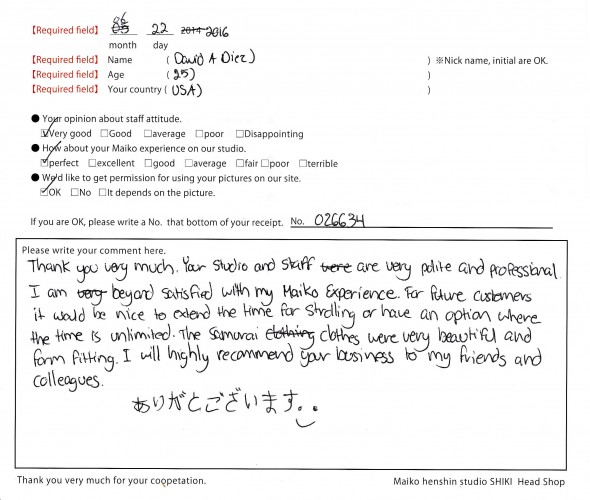 06 05 22 2014 2016
【Required field】 month day
【Required field】 Name ( David A Diez ) ※Nick name, initial are OK.
【Required field】 Age ( 25 )
【Required field】 Your country ( USA )
● Your opinion about staff attitude.
☑Very good □Good □average □poor □Disappointing
● How about your Maiko experience on our studio.
☑perfect □excellent □good □average □fair □poor □terrible
● We'd like to get permission for using your pictures on our site.
☑OK □No □It depends on the picture.
If you are OK, please write a No. that bottom of your receipt. No. 026634
Please write your comment here.
Thank you very much. Your studio and staff were are very polite and professional.
I am very beyond satisfied with my Maiko Experience. For future customers
it would be nice to extend the time for strolling or have an option where
the time is unlimited. The Samurai clothing clothes were very beautiful and
form fitting. I will highly recommend your business to my friends and
colleagues.
ありがとございます。
Thank you very much for your coopetation. Maiko henshin studio SHIKI Head Shop